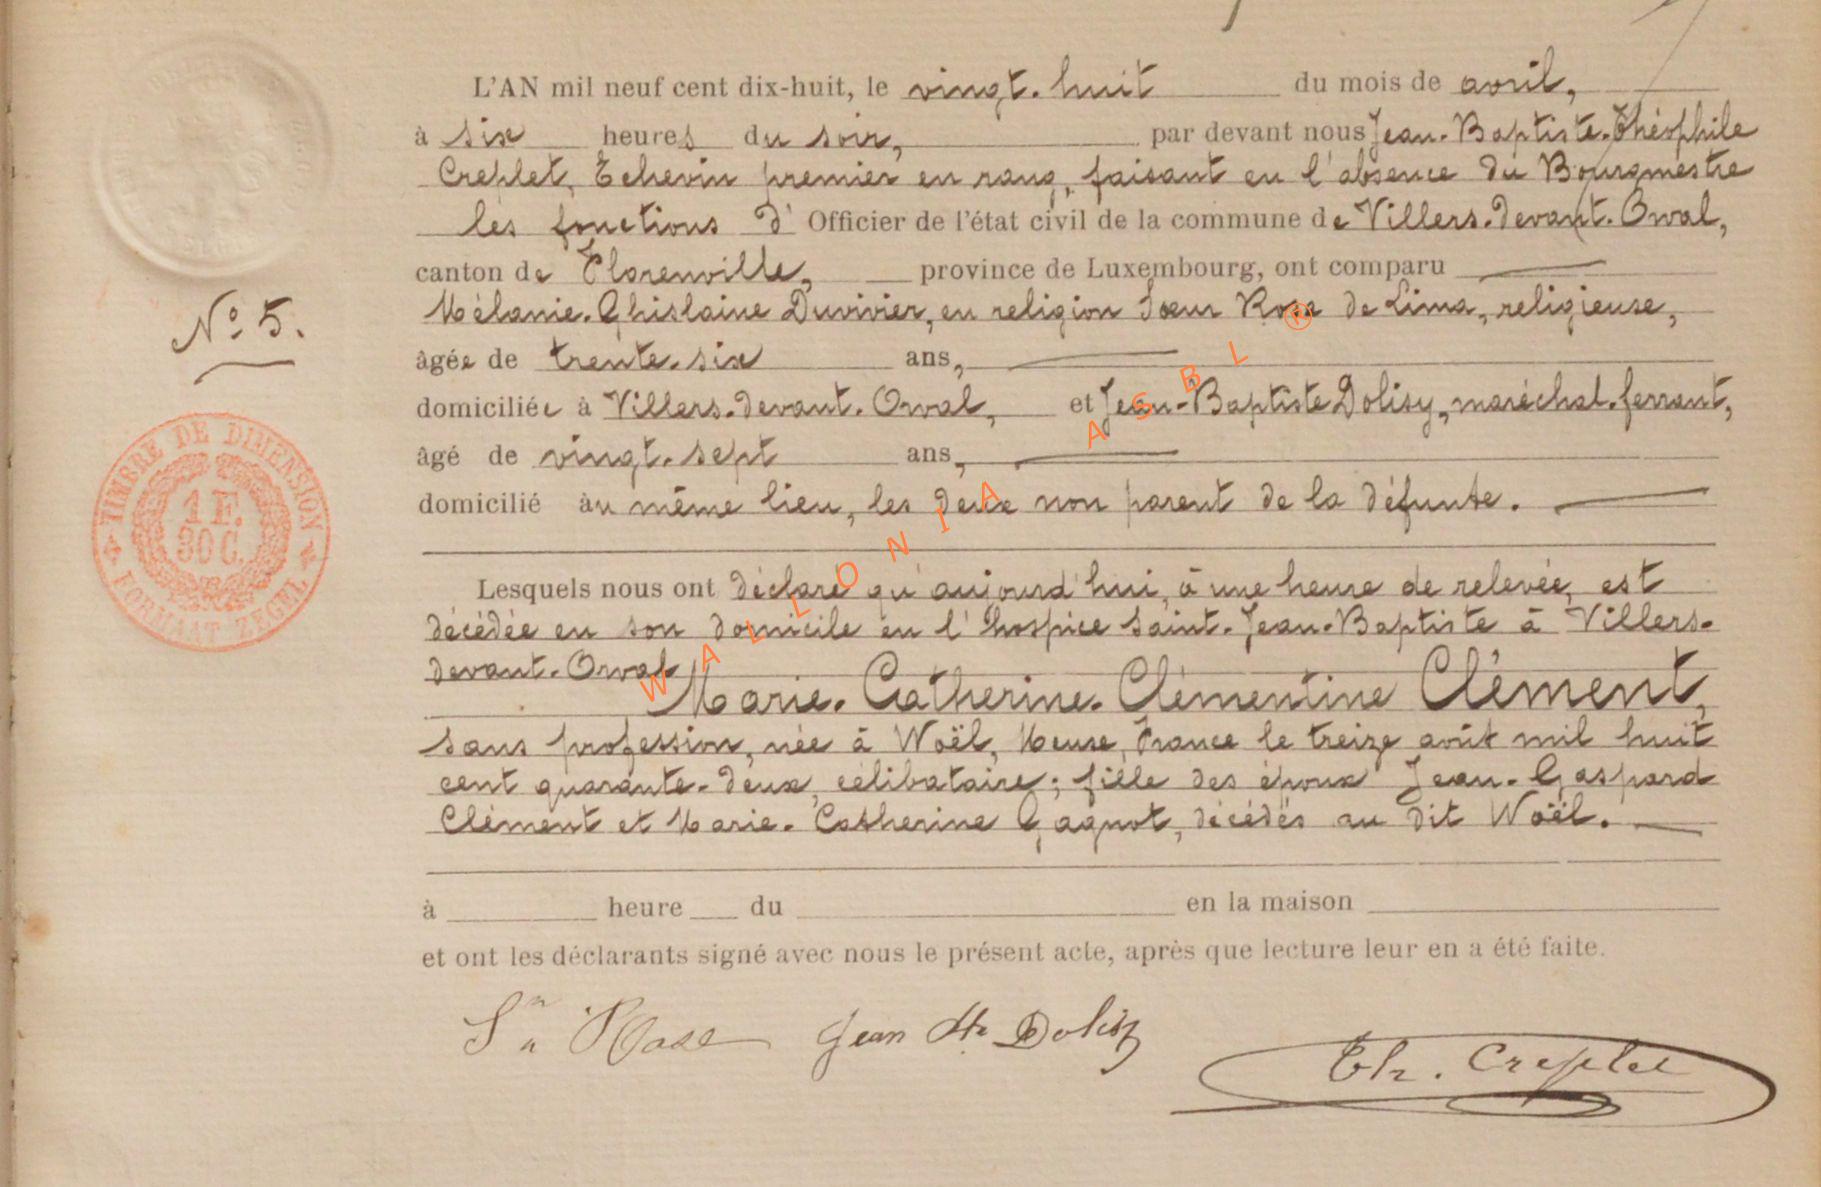 L'AN mil neuf cent dix-huit, le vingt-huit du mois de avril,
à six heures du soir, par devant nous Jean-Baptiste-Théophile
Creplet, Echevin premier en rang, faisant en l'absence du Bourgmestre
les fonctions d'Officier de l'état civil de la commune de Villers-devant-Orval,
canton de Florenville, province de Luxembourg, ont comparu
Mélanie-Ghislaine Duvivier, en religion Sœur Rose de Lima, religieuse,
N° 5.
âgée de trente-six ans,
domiciliée à Villers-devant-Orval, et Jean-Baptiste Dolisy, maréchal-ferrant,
âgé de vingt-sept ans,
domicilié au même lieu, les deux non parent de la défunte.
TIMBRE DE DIMENSION
1 F.
30 C.
FORMAAT ZEGEL
Lesquels nous ont déclaré qu'aujourd'hui, à une heure de relevée, est
décédée en son domicile en l'hospice Saint-Jean-Baptiste à Villers-
devant-Orval
Marie-Catherine-Clémentine Clément,
sans profession, née à Woël, Meuse, France le treize août mil huit
cent quarante-deux, célibataire; fille des époux Jean-Gaspard
Clément et Marie-Catherine Gagnot, décédés au dit Woël.
à heure du en la maison
et ont les déclarants signé avec nous le présent acte, après que lecture leur en a été faite.
Sr Rose Jean Bte Dolisy
Th. Creplet
WALLONIA ASBL ®